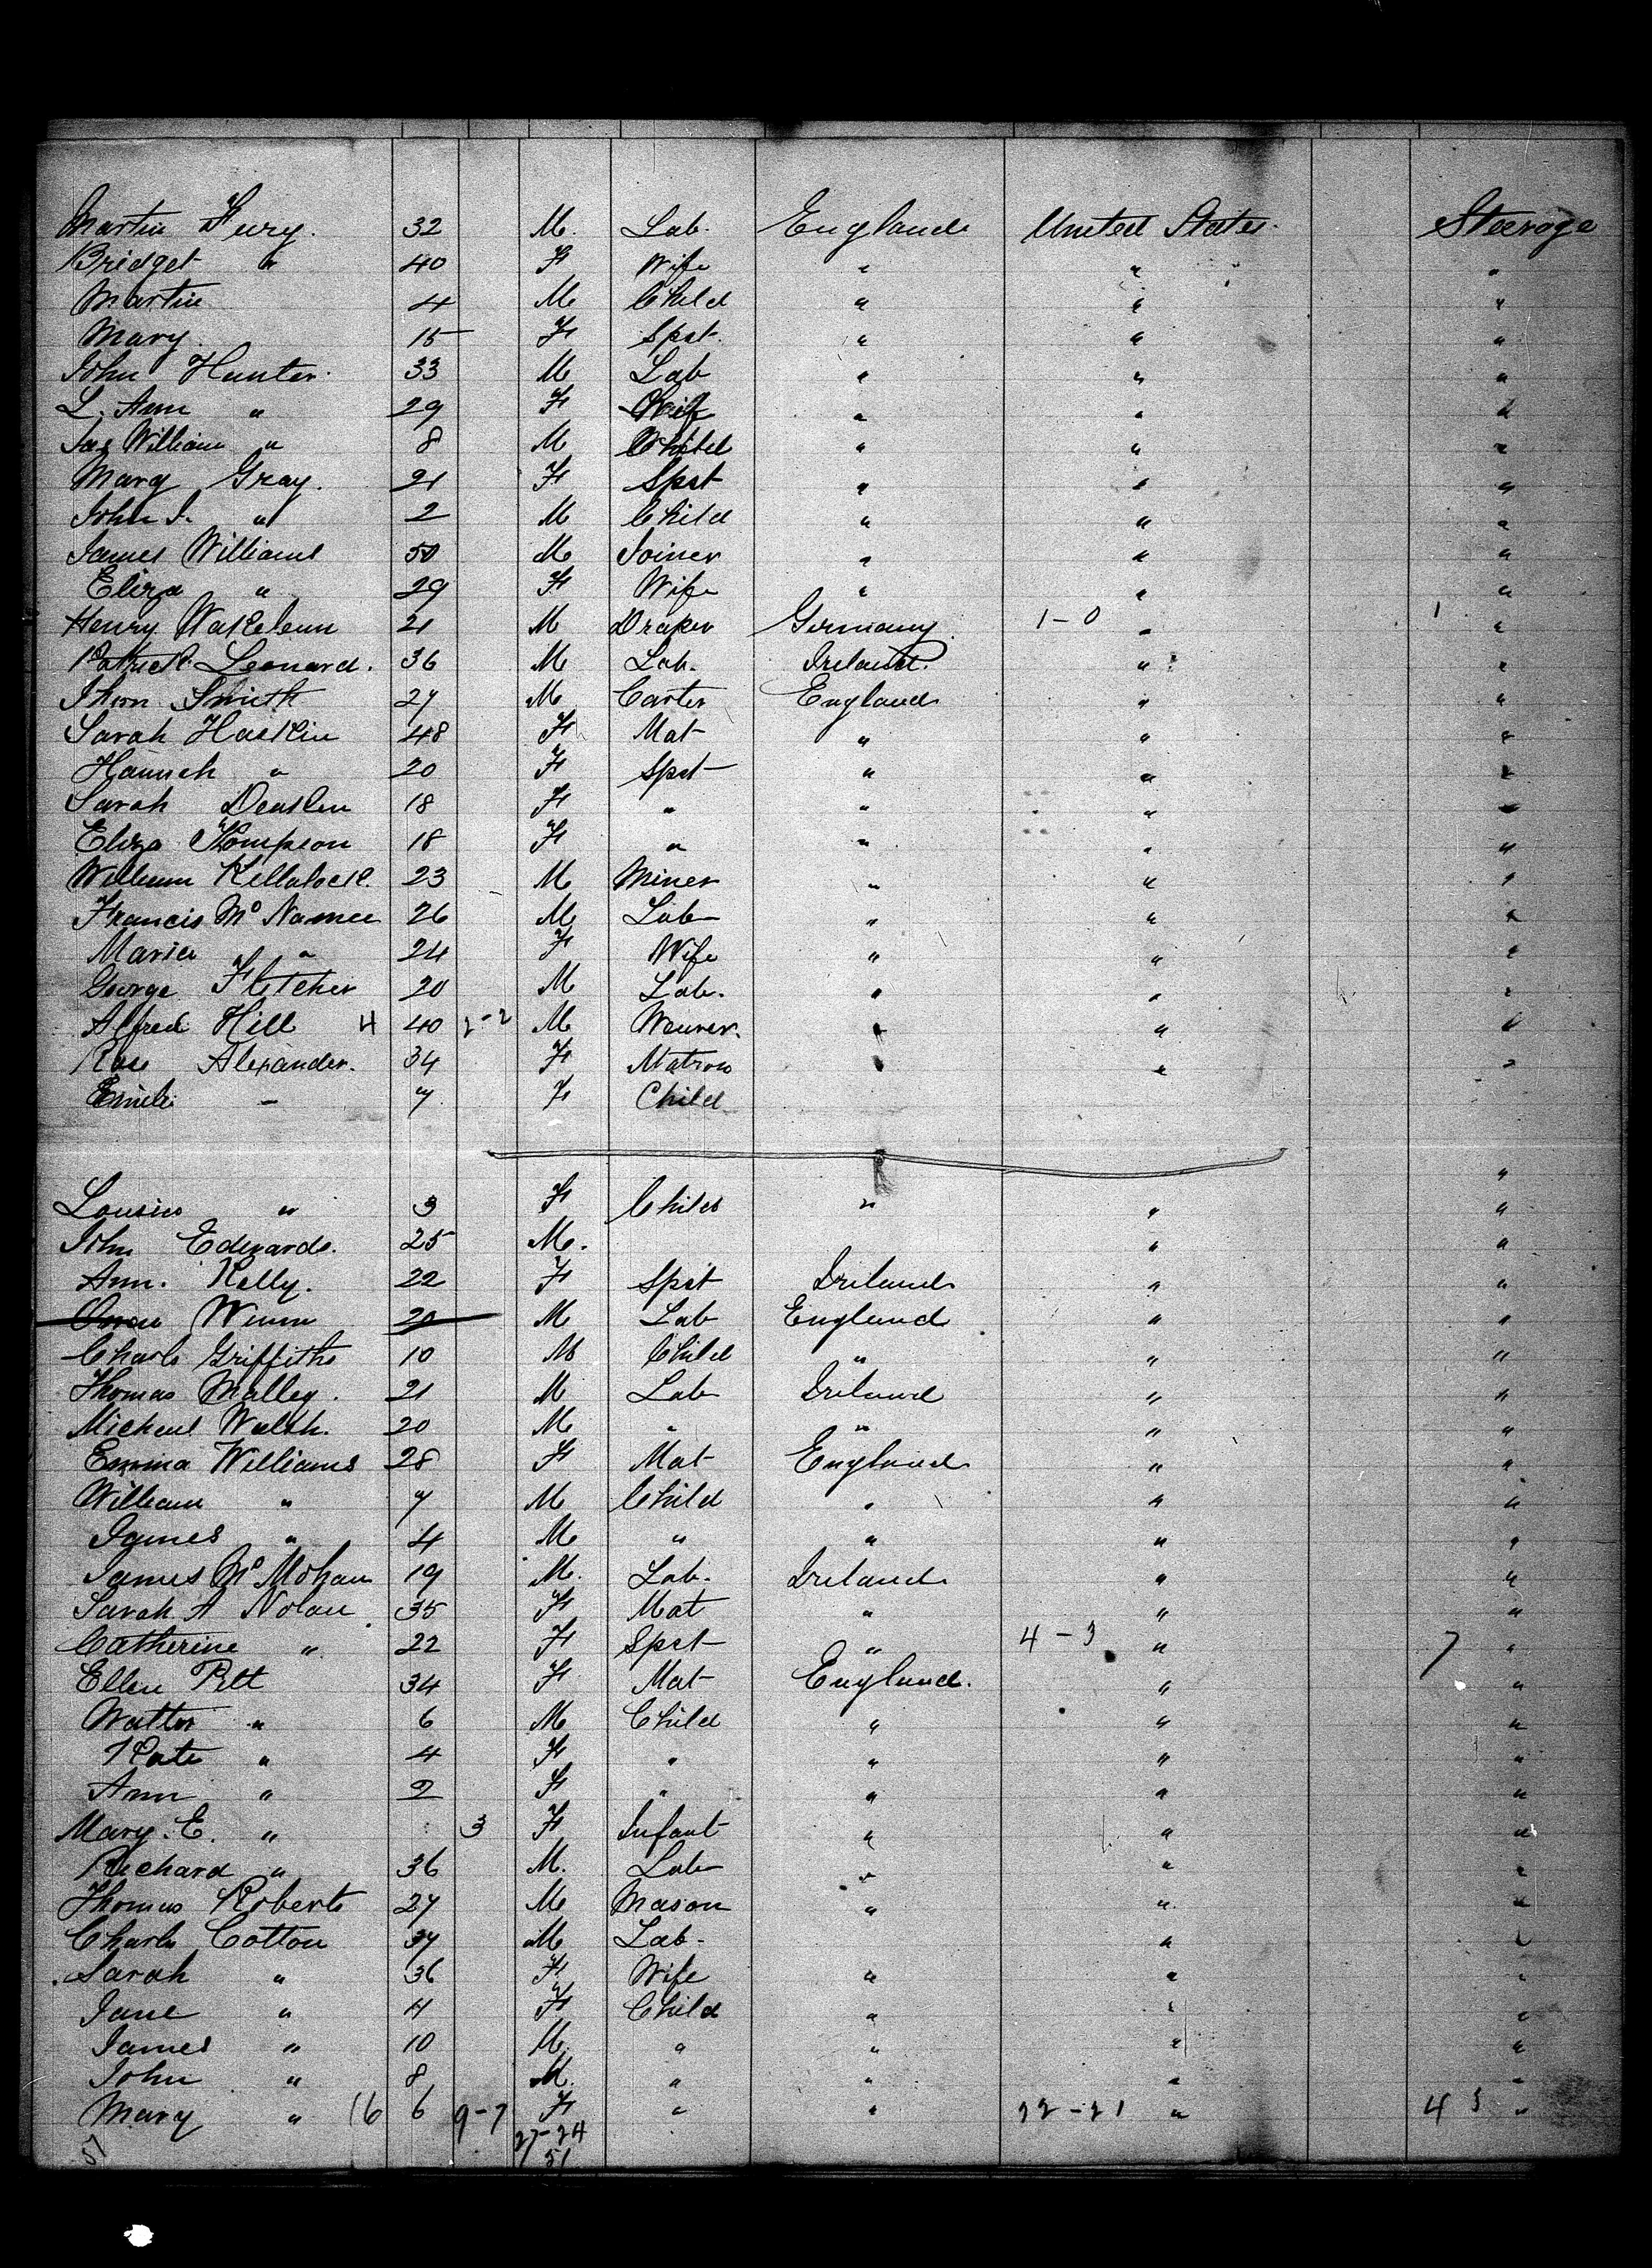 Martin Fury. 32 M. Lab. England United States. Steerage
Bridget " 40 F Wife " " "
Martin 4 M Child " " "
Mary. 15 F Spst. " " "
John Hunter. 33 M Lab " " "
L. Ann " 29 F Wife " " "
Jas William " 8 M Child " " "
Mary Gray. 21 F Spst " " "
John J. " 2 M Child " " "
James Williams 50 M Joiner " " "
Eliza " 29 F Wife " " "
Henry 21 M Draper Germany 1-0 " 1 "
Patrick Leonard. 36 M Lab. Ireland. " "
Thom Smith 27 M Carter England " "
Sarah Haskin 48 F Mat " " "
Hannah " 20 F Spst " " "
Sarah 18 F " " " "
Eliza Thompson 18 F " " " "
William 23 M Miner " " "
Francis Mc Namee 26 M Lab " " "
Maria " 24 F Wife " " "
George Fletcher 20 M Lab. " " "
Alfred Hill 4 40 2-2 M Weaver. " " "
Rose Alexander. 34 F Matron " " "
7 F Child
"
" 3 F Child " " "
John Edwards. 25 M. " "
Ann. Kelly. 22 F Spst Ireland " "
20 M Lab England " "
Charls Griffiths 10 M Child " " "
Thomas Malley. 21 M Lab Ireland " "
Michael Walsh. 20 M " " " "
Emma Williams 28 F Mat England " "
William " 7 M Child " " "
James " 4 M " " " "
James Mc Mohan 19 M. Lab. Ireland " "
Sarah A Nolan 35 F Mat " " "
Catherine " 22 F Spst " 4-3 " 7 "
Ellen Pitt 34 F Mat England. " "
Walter " 6 M Child " " "
Kate " 4 F " " " "
Ann " 2 F " " " "
Mary. E. " 3 F Infant " " "
Richard " 36 M. Lab " " "
Thomas Roberts 27 M Mason " " "
Charls Cotton 37 M Lab- " "
Sarah " 36 F Wife " " "
Jane " 11 F Child " " "
James " 10 M. " " " "
John " 8 M. " " " "
Mary " 16 6 9-7 F " " 22-21 " 43 "
51 27-24
51